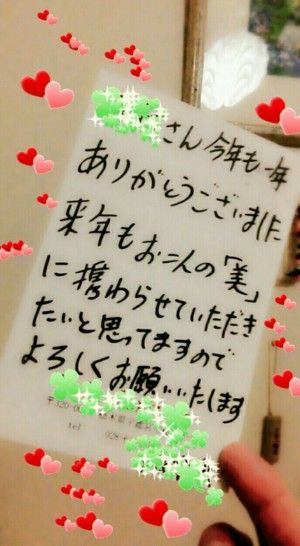 さん今年も一年
ありがとうございました
来年もお二人の「美」
に携わらせていただき
たいと思ってますので
よろしくお願いいたします
〒320-00
tel 028-